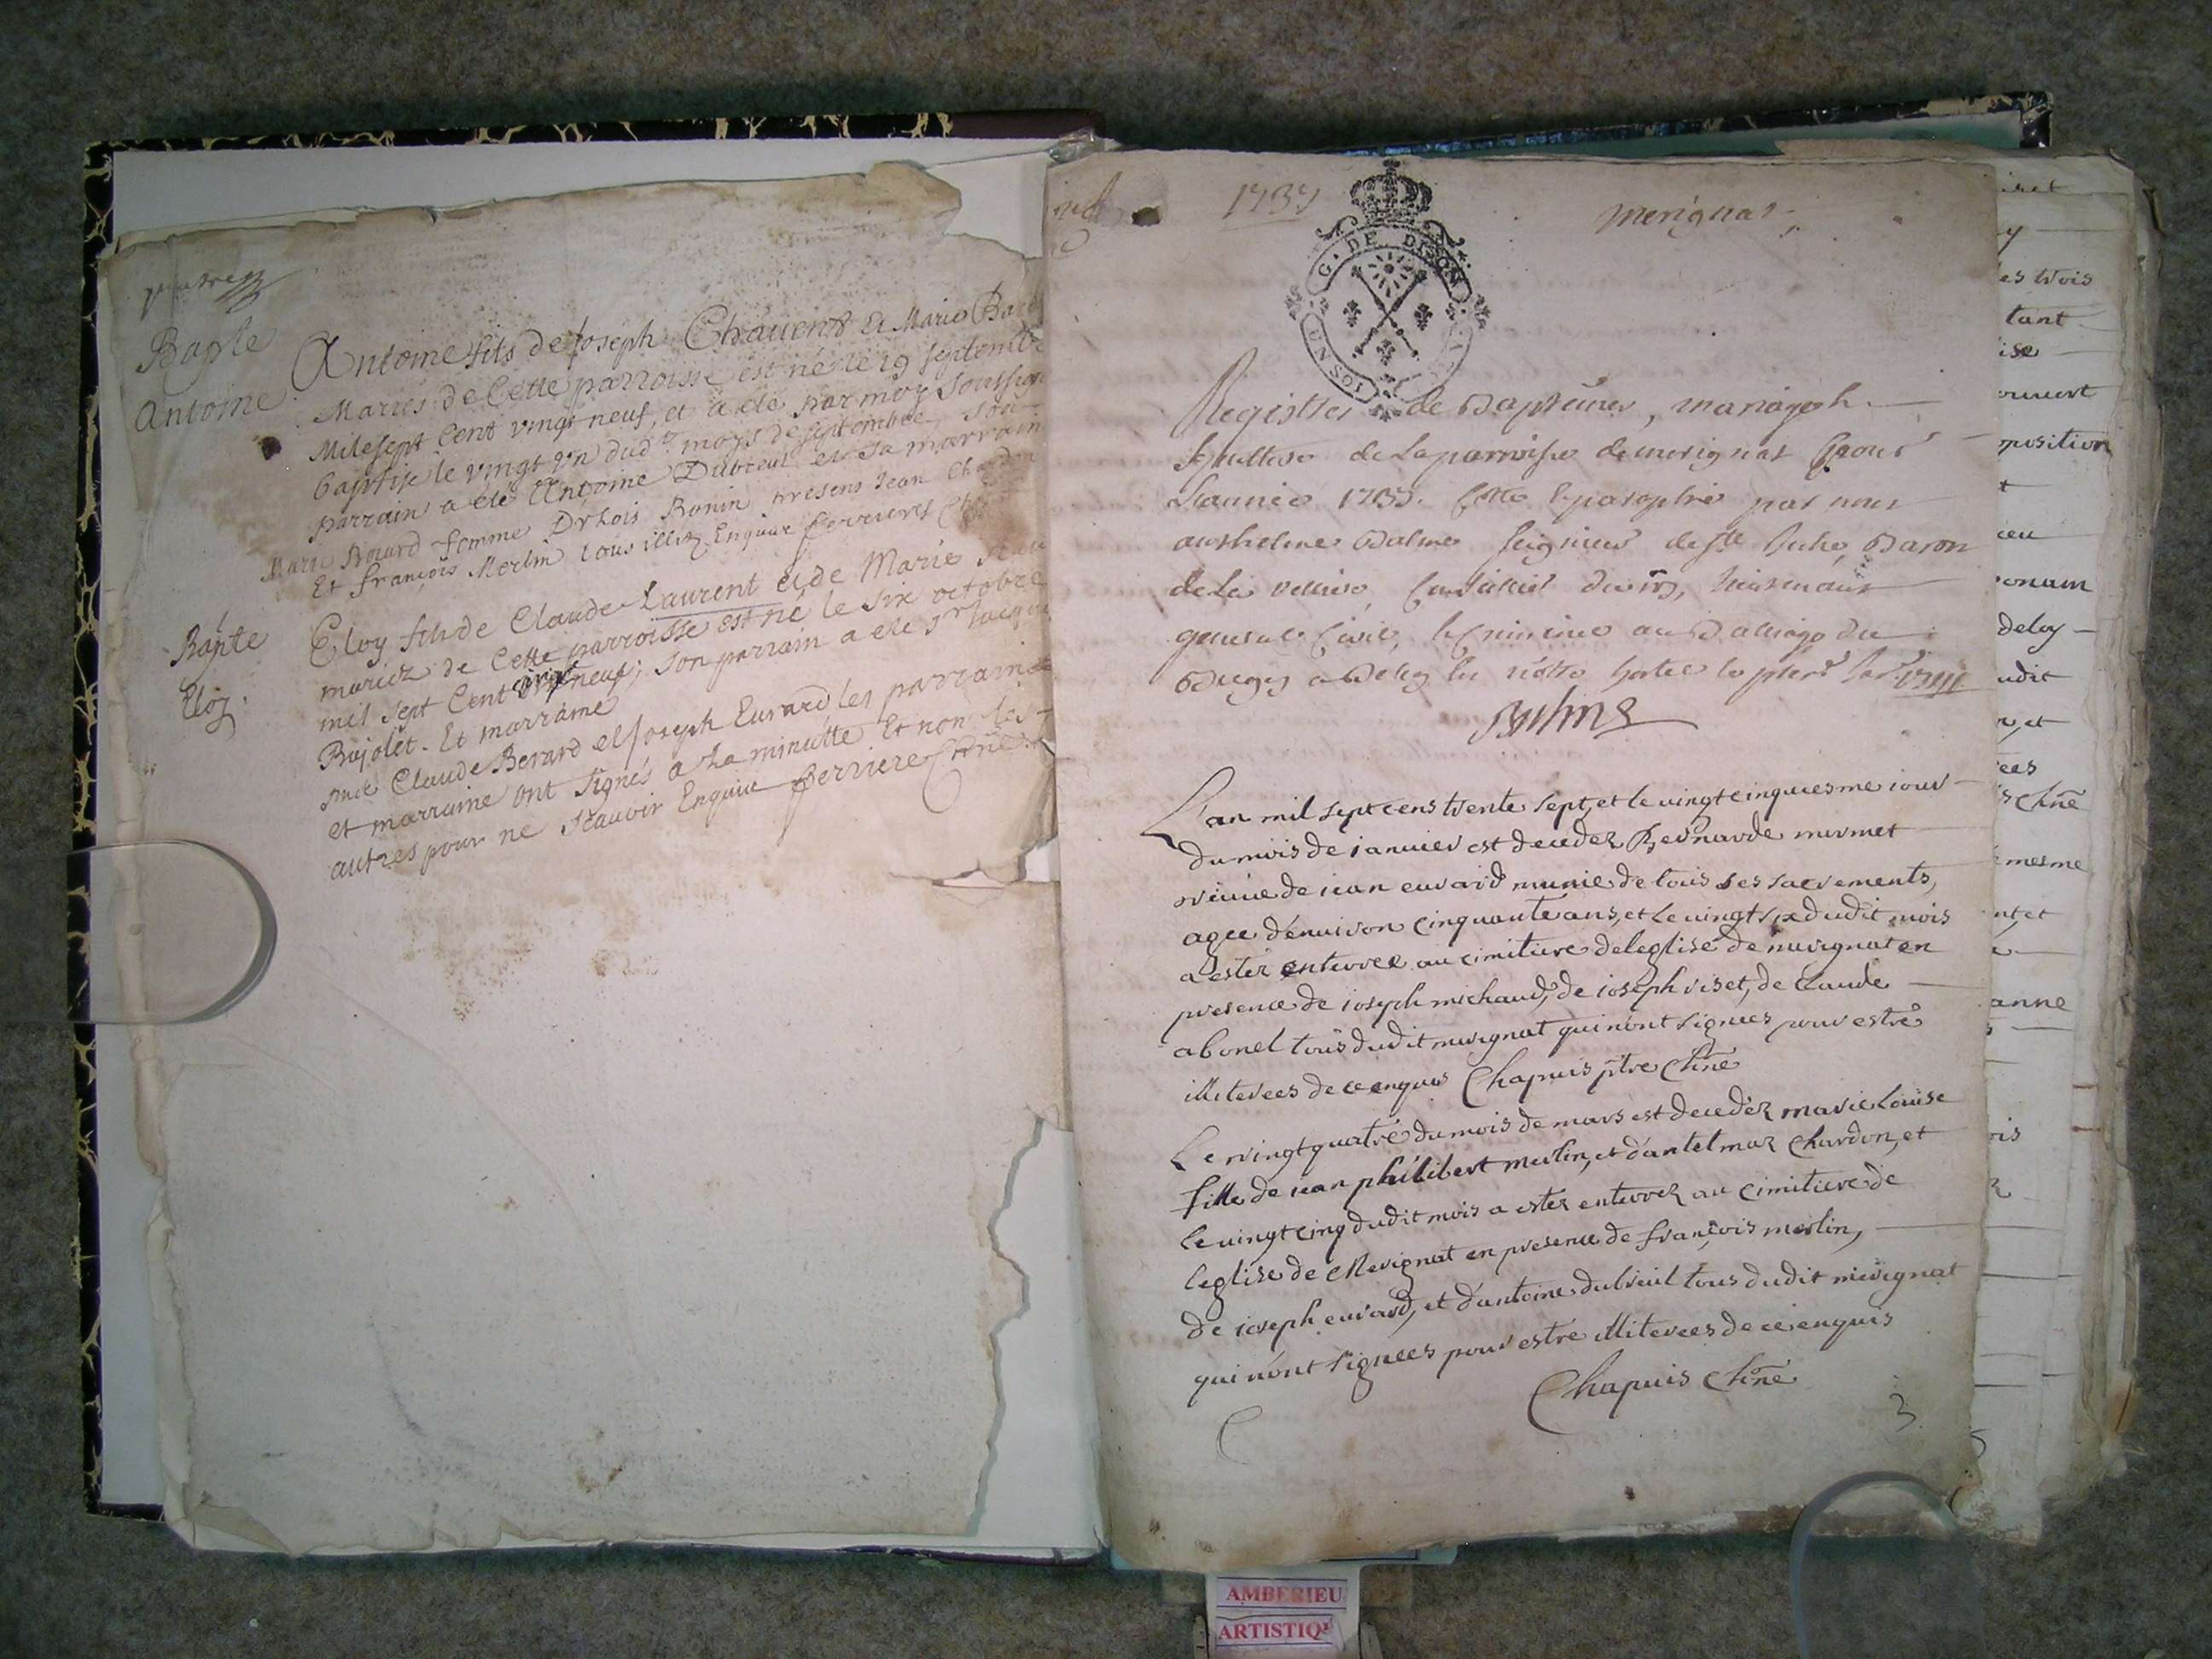 Bapte
Antoine
Antoine fils de Joseph Chavent et Marie
Mariés de Cette parroisse est né le 19 septembre
Mile sept Cent vingt neuf, et a ete par moy soussigné
baptise le vingt un dud. moys de septembre, son
parrain a ete Antoine Dubreul et sa marraine
Marie femme Ronin presens Jean Chardon
Et françois Merlin tous Enquis ferrieres
Bapte
Eloy
Eloy fils de Claude Laurent et de Marie
mariez de Cette parroisse est né le six octobre
mil sept Cent vingt neuf; son parrain a ete sr Jacque
Bajolet. Et marraine
Claude Berard et Joseph Euvrard les parrain
et marraine ont signés a La minutte Et non les
autres pour ne scauoir Enquis ferriere
1737
merignat
G. DE DIJON
UN SOL
Registre de Baptêmes, mariages &
sepulture de La parroisse de merignat pour
L'année 1737. Cotté & paraphé par nous
anthelme Balme seigneur de Ste Julie, Baron
de la velliere, Conseiller du roy, Lieutenant
general Civil, & Criminel au Balliage du
Bugey a Belley
Balme
L'an mil sept cens trente sept, et le uingt cinquiesme iour
du mois de ianuier est decedez Bernarde mermet
veuue de iean euvard munie de tous ses sacrements,
agee d'enuiron cinquante ans, et le uingt six dudit mois
a ester enterree au cimitiere de leglise de merignat en
presence de ioseph michaud, de ioseph viset, de claude
abonel tous dudit merignat qui n'ont signees pour estre
illiterees de ce enquis Chapuis ptre
Le vingt quatre du mois de mars est decedez marie Louise
fille de iean philibert merlin, et d'antelmaz chardon, et
le uingt cinq dudit mois a ester enterrez au cimitiere de
leglise de Merignat en presence de françois merlin,
de ioseph euvard, et d'antoine dubreuil tous dudit merignat
qui n'ont signees pour estre illiterees de ce enquis
Chapuis
3
es trois
tant
ouuert
position
deloy
udit
mesme
anne
AMBERIEU
ARTISTIQ